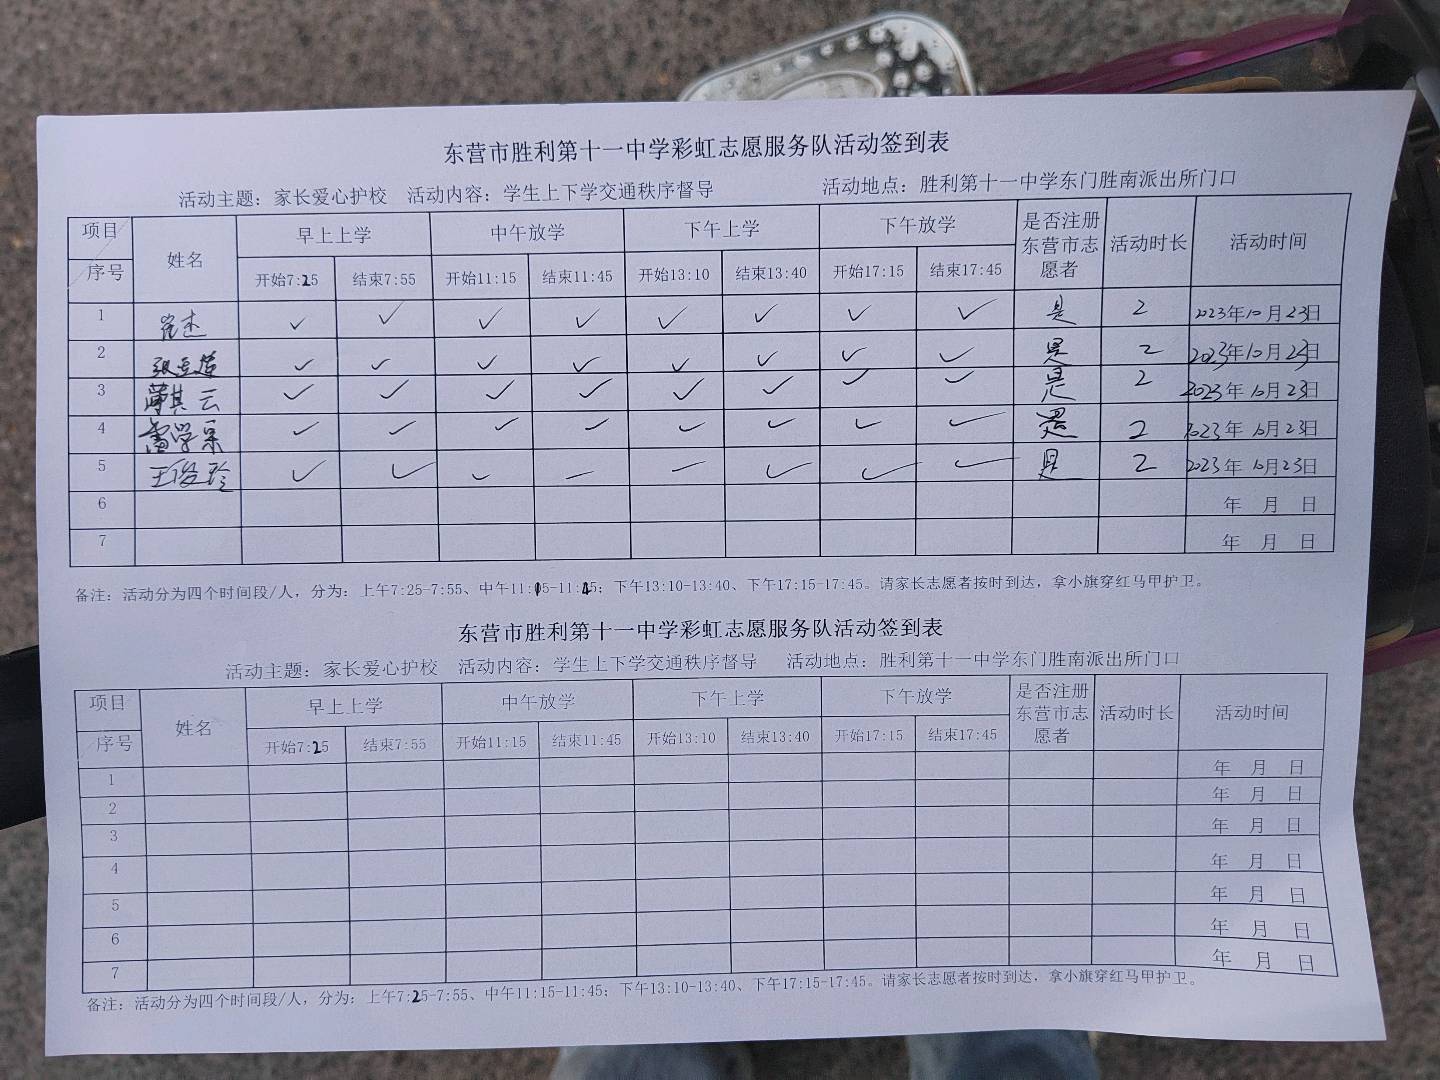 东营市胜利第十一中学彩虹志愿服务队活动签到表
活动主题：家长爱心护校 活动内容：学生上下学交通秩序督导 活动地点：胜利第十一中学东门胜南派出所门口
项目 序号 姓名 早上上学 中午放学 下午上学 下午放学 是否注册东营市志愿者 活动时长 活动时间
开始7:25 结束7:55 开始11:15 结束11:45 开始13:10 结束13:40 开始17:15 结束17:45
1 崔杰 ✓ ✓ ✓ ✓ ✓ ✓ ✓ ✓ 是 2 2023年10月23日
2 ✓ ✓ ✓ ✓ ✓ ✓ ✓ ✓ 是 2 2023年10月23日
3 薄其云 ✓ ✓ ✓ ✓ ✓ ✓ ✓ ✓ 是 2 2023年10月23日
4 ✓ ✓ ✓ ✓ ✓ ✓ ✓ ✓ 是 2 2023年10月23日
5 王俊玲 ✓ ✓ ✓ ✓ ✓ ✓ ✓ ✓ 是 2 2023年10月23日
6 年 月 日
7 年 月 日
备注：活动分为四个时间段/人，分为：上午7:25-7:55、中午11:15-11:45；下午13:10-13:40、下午17:15-17:45。请家长志愿者按时到达，拿小旗穿红马甲护卫。
东营市胜利第十一中学彩虹志愿服务队活动签到表
活动主题：家长爱心护校 活动内容：学生上下学交通秩序督导 活动地点：胜利第十一中学东门胜南派出所门口
项目 序号 姓名 早上上学 中午放学 下午上学 下午放学 是否注册东营市志愿者 活动时长 活动时间
开始7:25 结束7:55 开始11:15 结束11:45 开始13:10 结束13:40 开始17:15 结束17:45
1 年 月 日
2 年 月 日
3 年 月 日
4 年 月 日
5 年 月 日
6 年 月 日
7 年 月 日
备注：活动分为四个时间段/人，分为：上午7:25-7:55、中午11:15-11:45；下午13:10-13:40、下午17:15-17:45。请家长志愿者按时到达，拿小旗穿红马甲护卫。